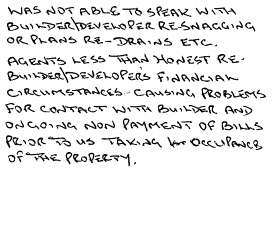 WAS NOT ABLE TO SPEAK WITH
BUILDER/DEVELOPER RE-SNAGGING
OR PLANS RE-DRAINS ETC.
AGENTS LESS THAN HONEST RE-
BUILDER/DEVELOPERS FINANCIAL
CIRCUMSTANCES.. CAUSING PROBLEMS
FOR CONTACT WITH BUILDER AND
ONGOING NON PAYMENT OF BILLS
PRIOR TO US TAKING OCCUPANCE
OF THE PROPERTY.